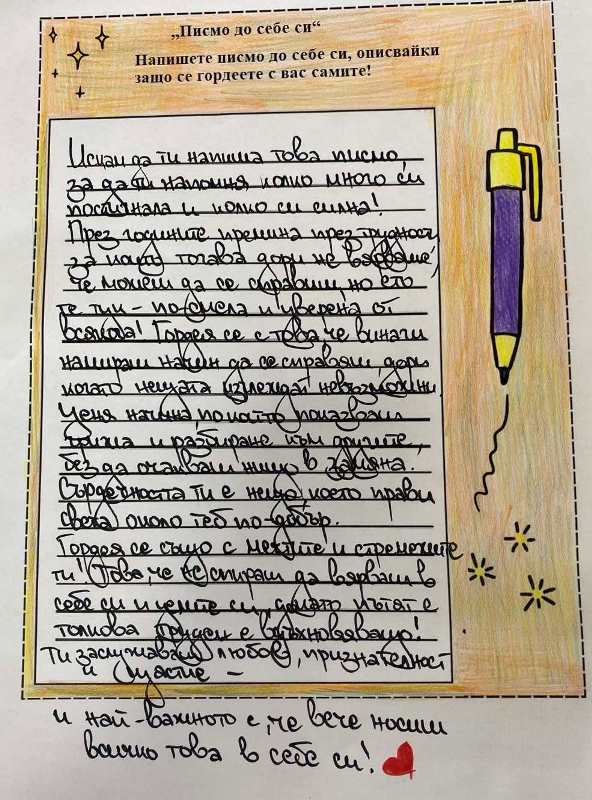 „Писмо до себе си“
Напишете писмо до себе си, описвайки
защо се гордеете с вас самите!
Искам да ти напиша това писмо,
за да ти напомня колко много си
постигнала и колко си силна!
През годините премина през трудности,
за които тогава дори не вярваше,
че можеш да се справиш, но ето
те тук - по-смела и уверена от
всякога! Гордея се с това, че винаги
намираш начин да се справяш, дори
когато нещата изглеждат невъзможни.
Ценя начина, по който показваш
грижа и разбиране към другите,
без да очакваш нищо в замяна.
Сърдечността ти е нещо, което прави
света около теб по-добър.
Гордея се също с мечтите и стремежите
ти! Това, че не спираш да вярваш в
себе си и целите си, докато пътят е
толкова труден е вдъхновяващо!
Ти заслужаваш любов, признателност
и щастие -
и най-важното е, че вече носиш
всичко това в себе си!